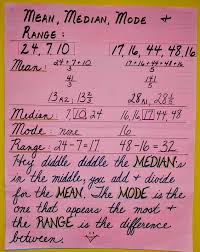 MEAN, MEDIAN, MODE +
RANGE:
24, 7, 10 17, 16, 44, 48, 16
Mean: 24 + 7 + 10 17 + 16 + 44 + 48 + 16
41 141
3 5
13 R2; 13 2/3
Median: 7, 10 24 16, 16, 17, 44, 48
Mode: none 16
Range: 24 - 7 = 17 48 - 16 = 32
Hey diddle diddle the MEDIAN's
in the middle, you add + divide
for the MEAN. The MODE is the
one that appears the most +
the RANGE is the difference
between.